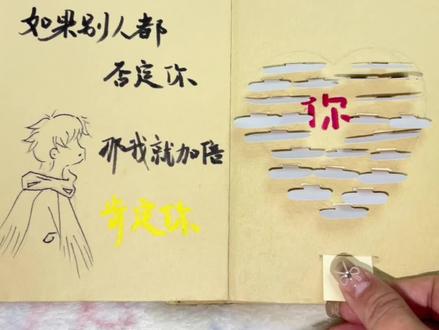 如果别人都
否定你
那我就加倍
肯定你
你